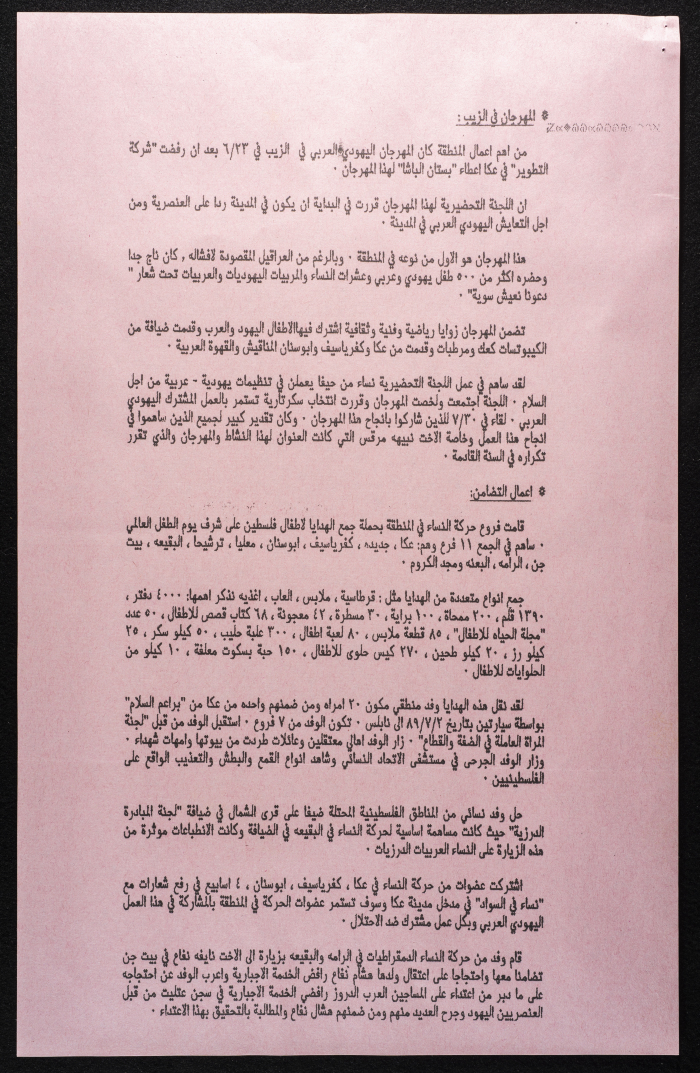 * المهرجان في الزيب :
من اهم اعمال المنطقة كان المهرجان اليهودي العربي في الزيب في ٦/٢٣ بعد ان رفضت "شركة
التطوير" في عكا اعطاء "بستان الباشا" لهذا المهرجان .
ان اللجنة التحضيرية لهذا المهرجان قررت في البداية ان يكون في المدينة ردا على العنصرية ومن
اجل التعايش اليهودي العربي في المدينة .
هذا المهرجان هو الاول من نوعه في المنطقة . وبالرغم من العراقيل المقصودة لافشاله , كان ناج جدا
وحضره اكثر من ٥٠٠ طفل يهودي وعربي وعشرات النساء والمربيات اليهوديات والعربيات تحت شعار "
دعونا نعيش سوية" .
تضمن المهرجان زوايا رياضية وفنية وثقافية اشترك فيهاالاطفال اليهود والعرب وقدمت ضيافة من
الكيبوتسات كعك ومرطبات وقدمت من عكا وكفرياسيف وابوسنان المناقيش والقهوة العربية .
لقد ساهم في عمل اللجنة التحضيرية نساء من حيفا يعملن في تنظيمات يهودية - عربية من اجل
السلام . اللجنة اجتمعت ولخصت المهرجان وقررت انتخاب سكرتارية تستمر بالعمل المشترك اليهودي
العربي . لقاء في ٧/٣٠ للذين شاركوا بانجاح هذا المهرجان . وكان تقدير كبير لجميع الذين ساهموا في
انجاح هذا العمل وخاصة الاخت نبيهه مرقس التي كانت العنوان لهذا النشاط والمهرجان والذي تقرر
تكراره في السنة القادمة .
* اعمال التضامن:
قامت فروع حركة النساء في المنطقة بحملة جمع الهدايا لاطفال فلسطين على شرف يوم الطفل العالمي
. ساهم في الجمع ١١ فرع وهم: عكا ، جديده ، كفرياسيف ، ابوسنان ، معليا ، ترشيحا ، البقيعه ، بيت
جن ، الرامه ، البعنه ومجد الكروم .
جمع انواع متعددة من الهدايا مثل : قرطاسية ، ملابس ، العاب ، اغذيه نذكر اهمها: ٤٠٠٠ دفتر ،
١٣٩٠ قلم ، ٢٠٠ ممحاة ، ١٠٠ براية ، ٣٠ مسطرة ، ٤٢ معجونة ، ٦٨ كتاب قصص للاطفال ، ٥٠ عدد
"مجلة الحياه للاطفال" ، ٨٥ قطعة ملابس ، ٨٠ لعبة اطفال ، ٣٠٠ علبة حليب ، ٥٠ كيلو سكر ، ٢٥
كيلو رز ، ٢٠ كيلو طحين ، ٢٧٠ كيس حلوى للاطفال ، ١٥٠ حبة بسكوت مغلفة ، ١٠ كيلو من
الحلوايات للاطفال .
لقد نقل هذه الهدايا وفد منطقي مكون ٢٠ امراه ومن ضمنهم واحده من عكا من "براعم السلام"
بواسطة سيارتين بتاريخ ٨٩/٧/٢ الى نابلس . تكون الوفد من ٧ فروع . استقبل الوفد من قبل "لجنة
المرأة العاملة في الضفة والقطاع" . زار الوفد اهالي معتقلين وعائلات طردت من بيوتها وامهات شهداء .
وزار الوفد الجرحى في مستشفى الاتحاد النسائي وشاهد انواع القمع والبطش والتعذيب الواقع على
الفلسطينيين .
حل وفد نسائي من المناطق الفلسطينية المحتلة ضيفا على قرى الشمال في ضيافة "لجنة المبادرة
الدرزية" حيث كانت مساهمة اساسية لحركة النساء في البقيعه في الضيافة وكانت الانطباعات موثرة من
هذه الزيارة على النساء العربيات الدرزيات .
اشتركت عضوات من حركة النساء في عكا ، كفرياسيف ، ابوسنان ، ٤ اسابيع في رفع شعارات مع
"نساء في السواد" في مدخل مدينة عكا وسوف تستمر عضوات الحركة في المنطقة بالمشاركة في هذا العمل
اليهودي العربي وبكل عمل مشترك ضد الاحتلال .
قام وفد من حركة النساء الدمقراطيات في الرامه والبقيعه بزيارة الى الاخت نايفه نفاع في بيت جن
تضامنا معها واحتجاجا على اعتقال ولدها هشام نفاع رافض الخدمة الاجبارية واعرب الوفد عن احتجاجه
على ما دبر من اعتداء على المساجين العرب الدروز رافضي الخدمة الاجبارية في سجن عتليت من قبل
العنصريين اليهود وجرح العديد منهم ومن ضمنهم هشال نفاع والمطالبة بالتحقيق بهذا الاعتداء .